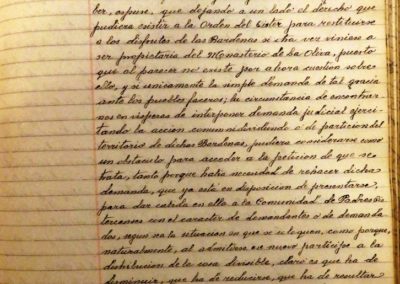 ber, expuse, que dejando a un lado el derecho que
pudiera existir a la Orden del Cister para restituirse
a los disfrutes de las Bardenas si esta vez viniese a
ser propietaria del Monasterio de la Oliva, puesto
que al parecer no existe por ahora cuestion sobre
ello, y si unicamente la simple demanda de tal gracia
ante los pueblos faceros; la circunstancia de encontrar-
nos en visperas de interponer demanda judicial ejerci-
tando la accion comuni dividundo o de particion del
territorio de dichas Bardenas, pudiera considerarse como
un obstaculo para acceder a la peticion de que se
trata, tanto porque habia necesidad de rehacer dicha
demanda, que ya está en disposicion de presentarse,
para dar cabida en ella a la Comunidad de Padres Cis
tercenses con el caracter de demandantes o de demanda
dos, segun sea la situacion en que se coloquen, como porque,
naturalmente, al admitirse un nuevo participe a la
distribucion de la cosa divisible, claro es que ha de
disminuir, que ha de reducirse, que ha de resultar